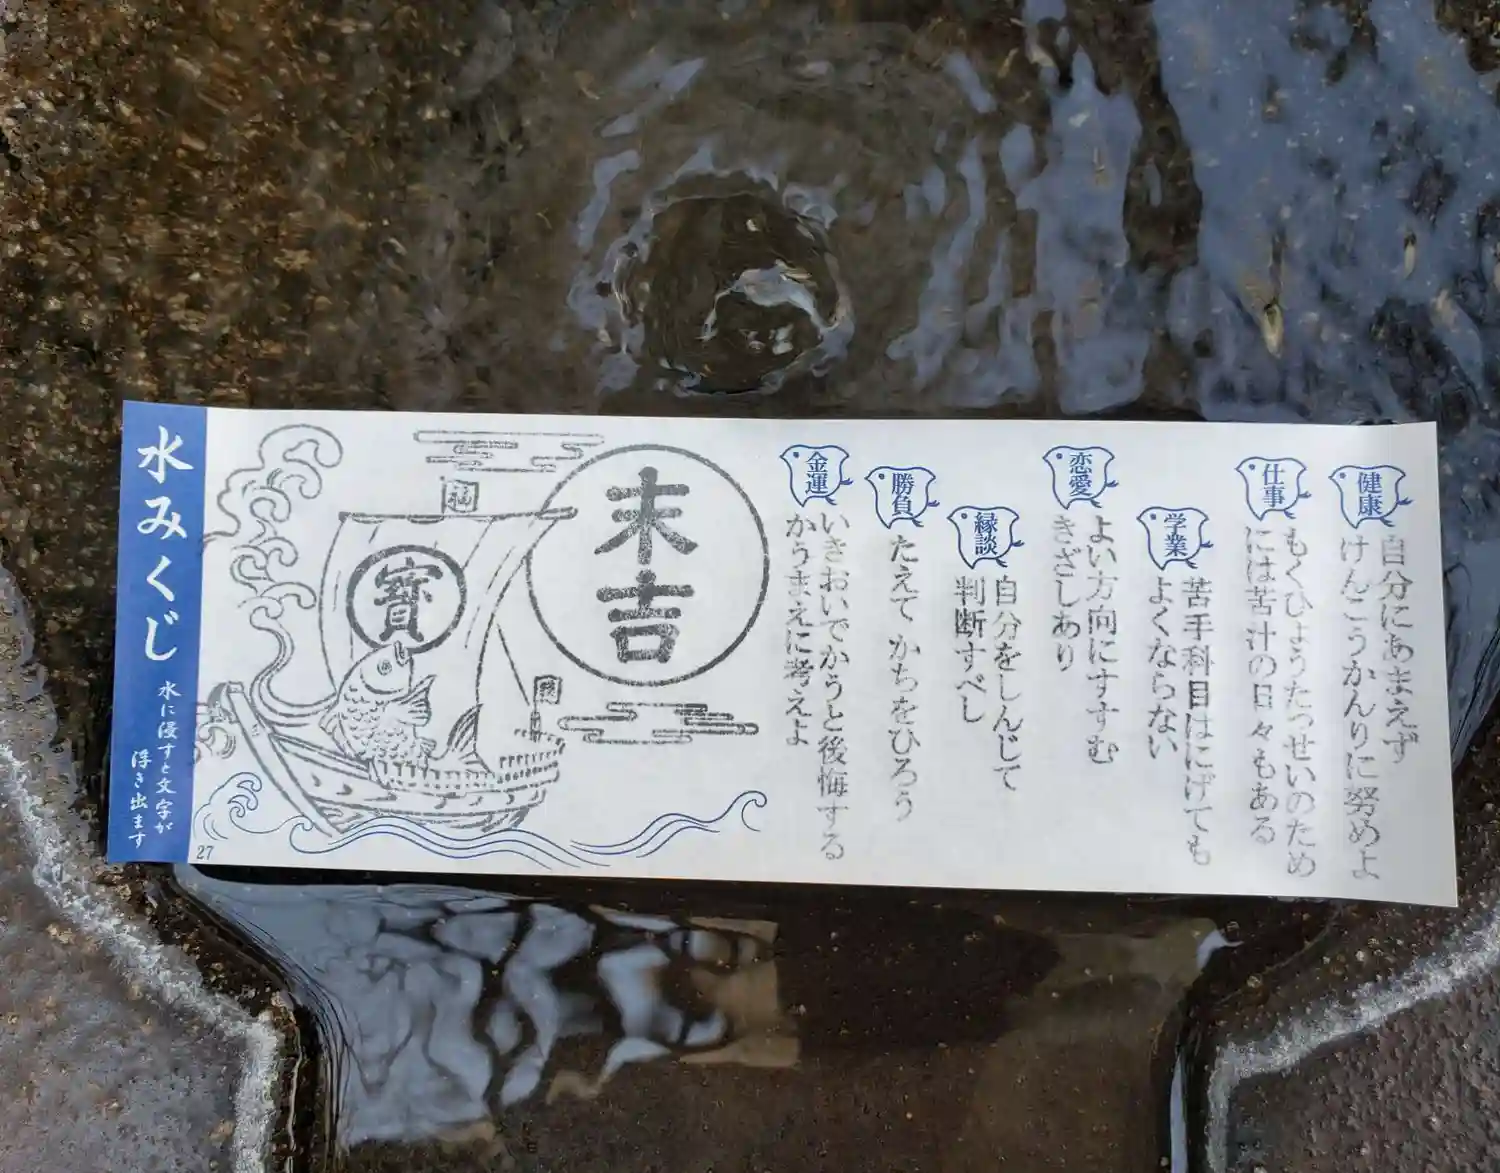 健康
自分にあまえず
けんこうかんりに努めよ
仕事
もくひょうたっせいのため
には苦汁の日々もある
学業
苦手科目はにげても
よくならない
恋愛
よい方向にすすむ
きざしあり
縁談
自分をしんじて
判断すべし
勝負
たえて かちをひろう
金運
いきおいでかうと後悔する
かうまえに考えよ
末吉
福
寶
水みくじ
水に浸すと文字が
浮き出ます
27